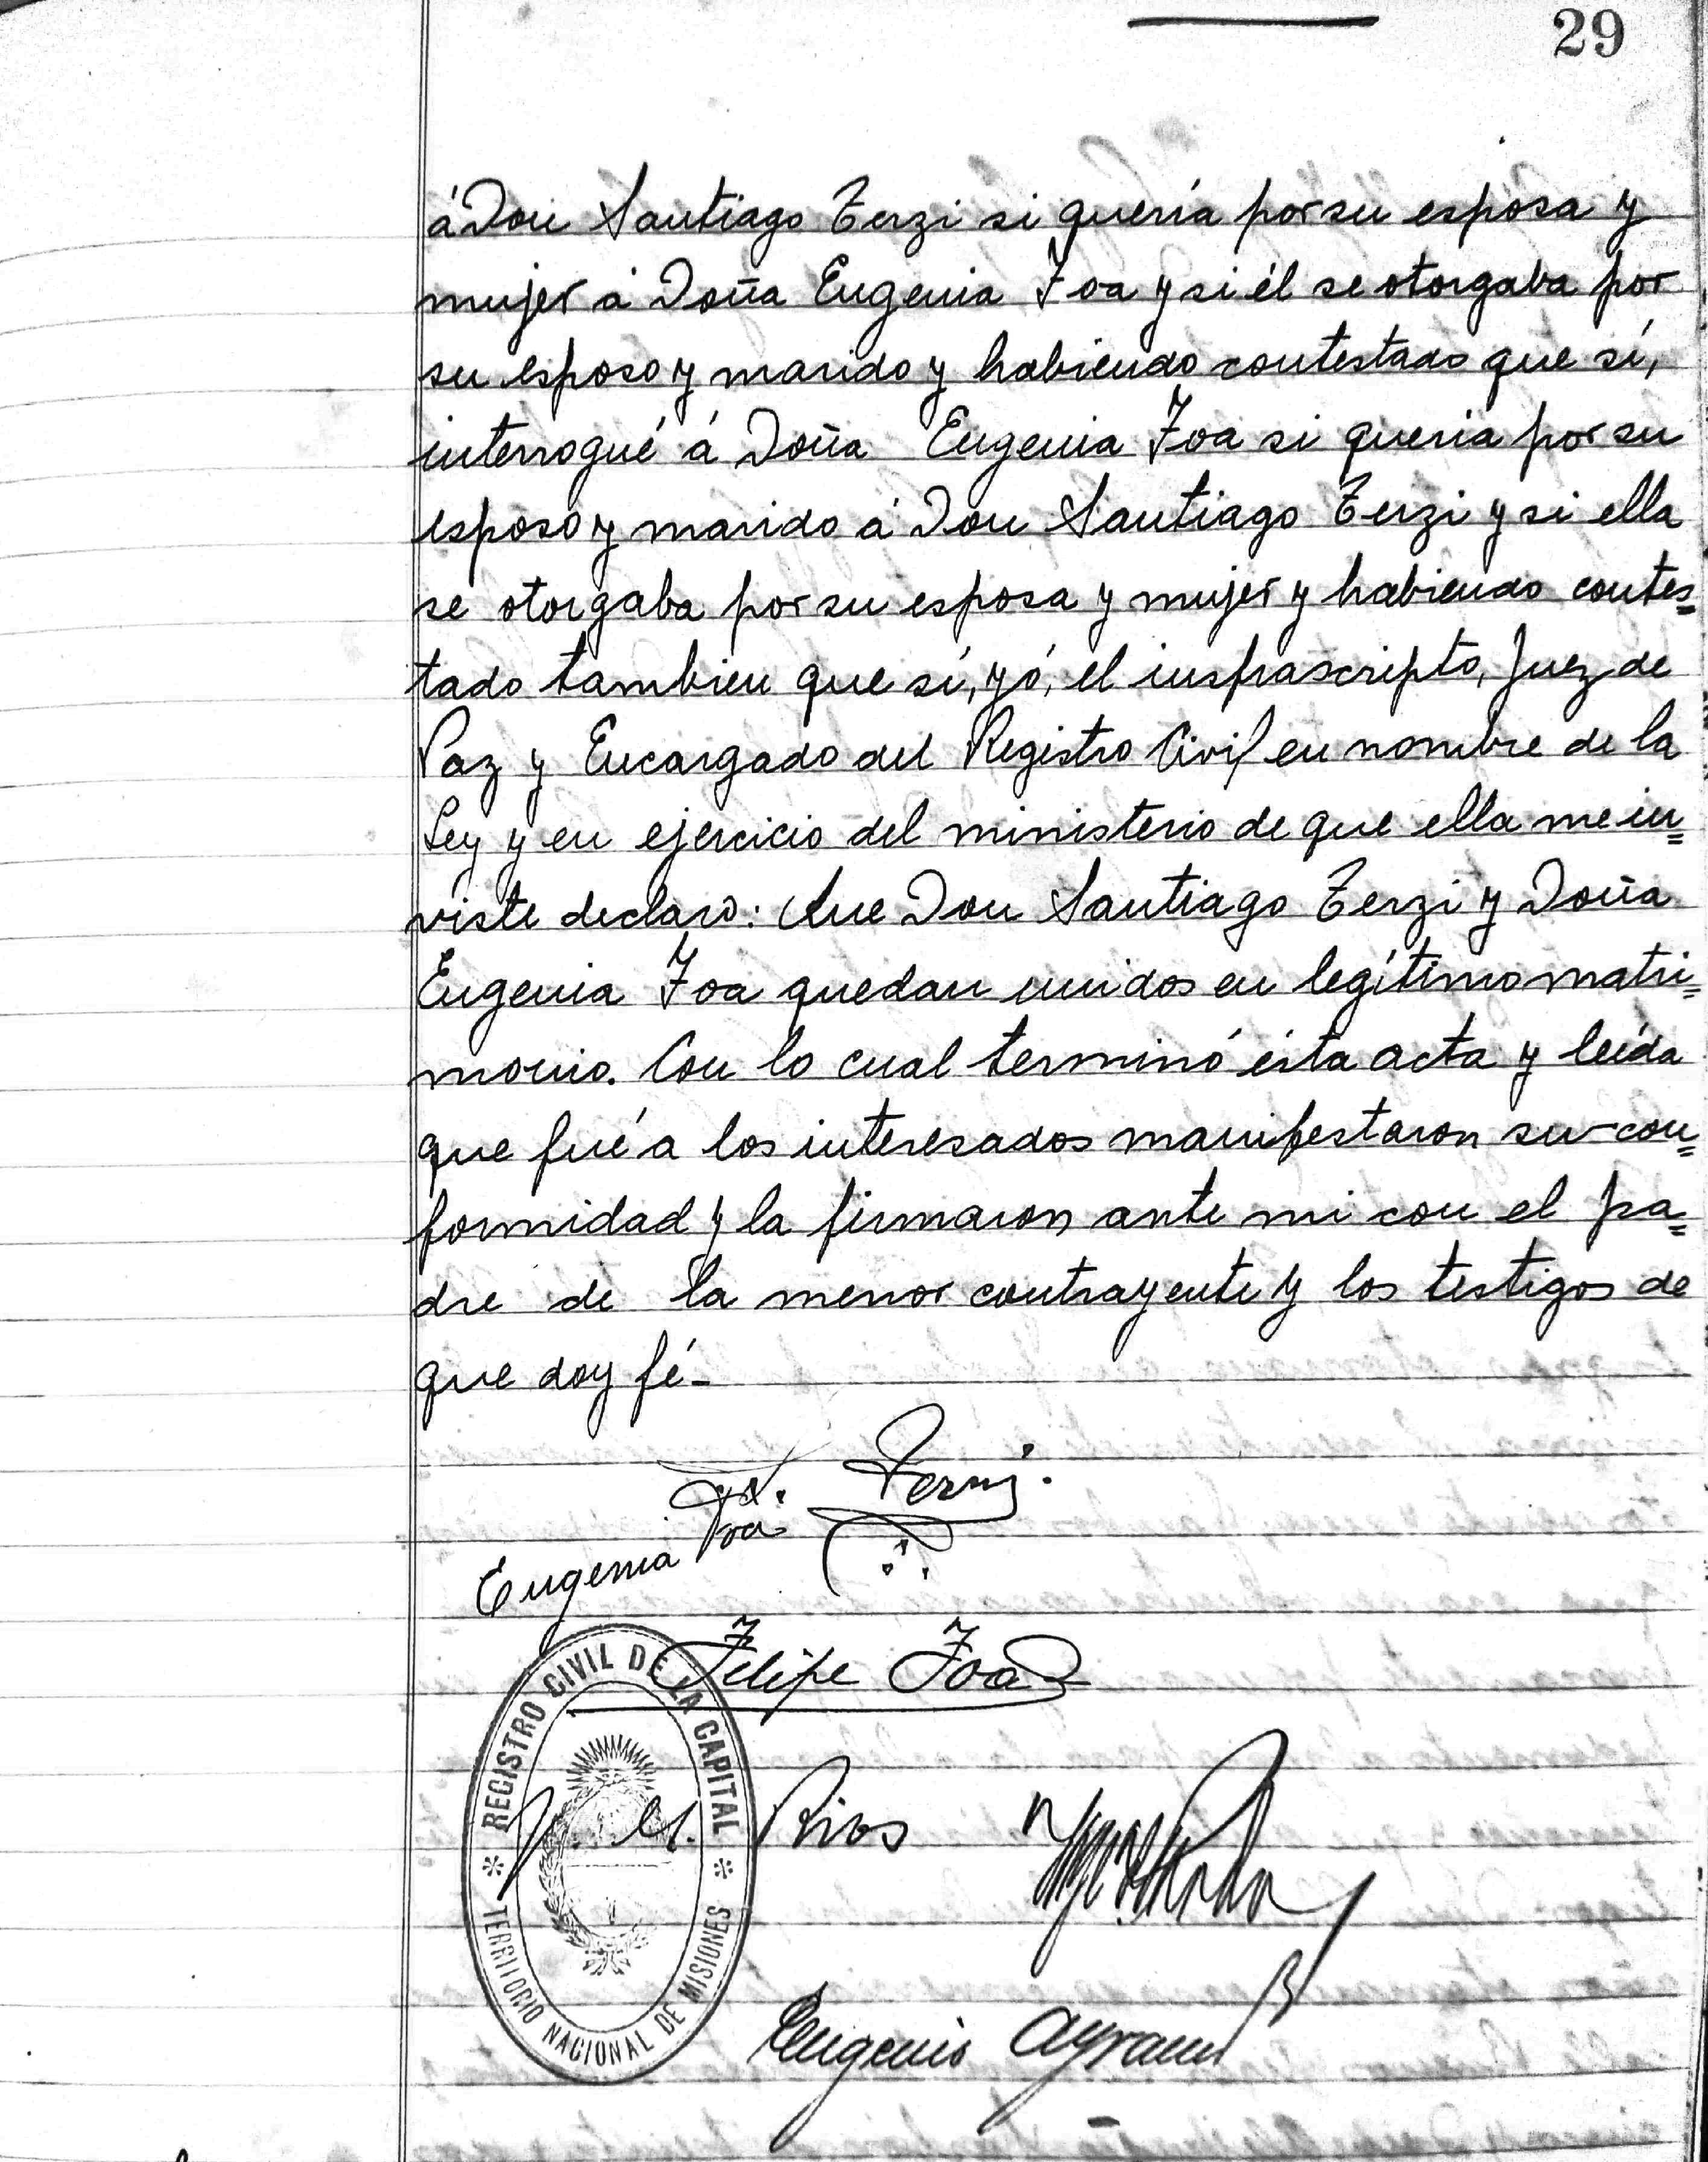 29
á Don Santiago Terzi si quería por su esposa y
mujer á Doña Eugenia Foa y si él se otorgaba por
su esposo y marido y habiendo contestado que sí,
interrogué á Doña Eugenia Foa si queria por su
esposo y marido á Don Santiago Terzi y si ella
se otorgaba por su esposa y mujer y habiendo contes=
tado tambien que sí, yó, el insfrascripto, Juez de
Paz y Encargado del Registro Civil en nombre de la
Ley y en ejercicio del ministerio de que ella me in=
viste declaro: Que Don Santiago Terzi y Doña
Eugenia Foa quedan unidos en legítimo matri=
monio. Con lo cual terminó ésta acta y leída
que fué a los interesados manifestaron su con=
formidad y la firmaron ante mi con el pa=
dre de la menor contrayente y los testigos de
que doy fé-
Terzi.
Eugenia Foa
Felipe Foa
REGISTRO CIVIL DE LA CAPITAL
* TERRITORIO NACIONAL DE MISIONES *
Rios
Eugenio